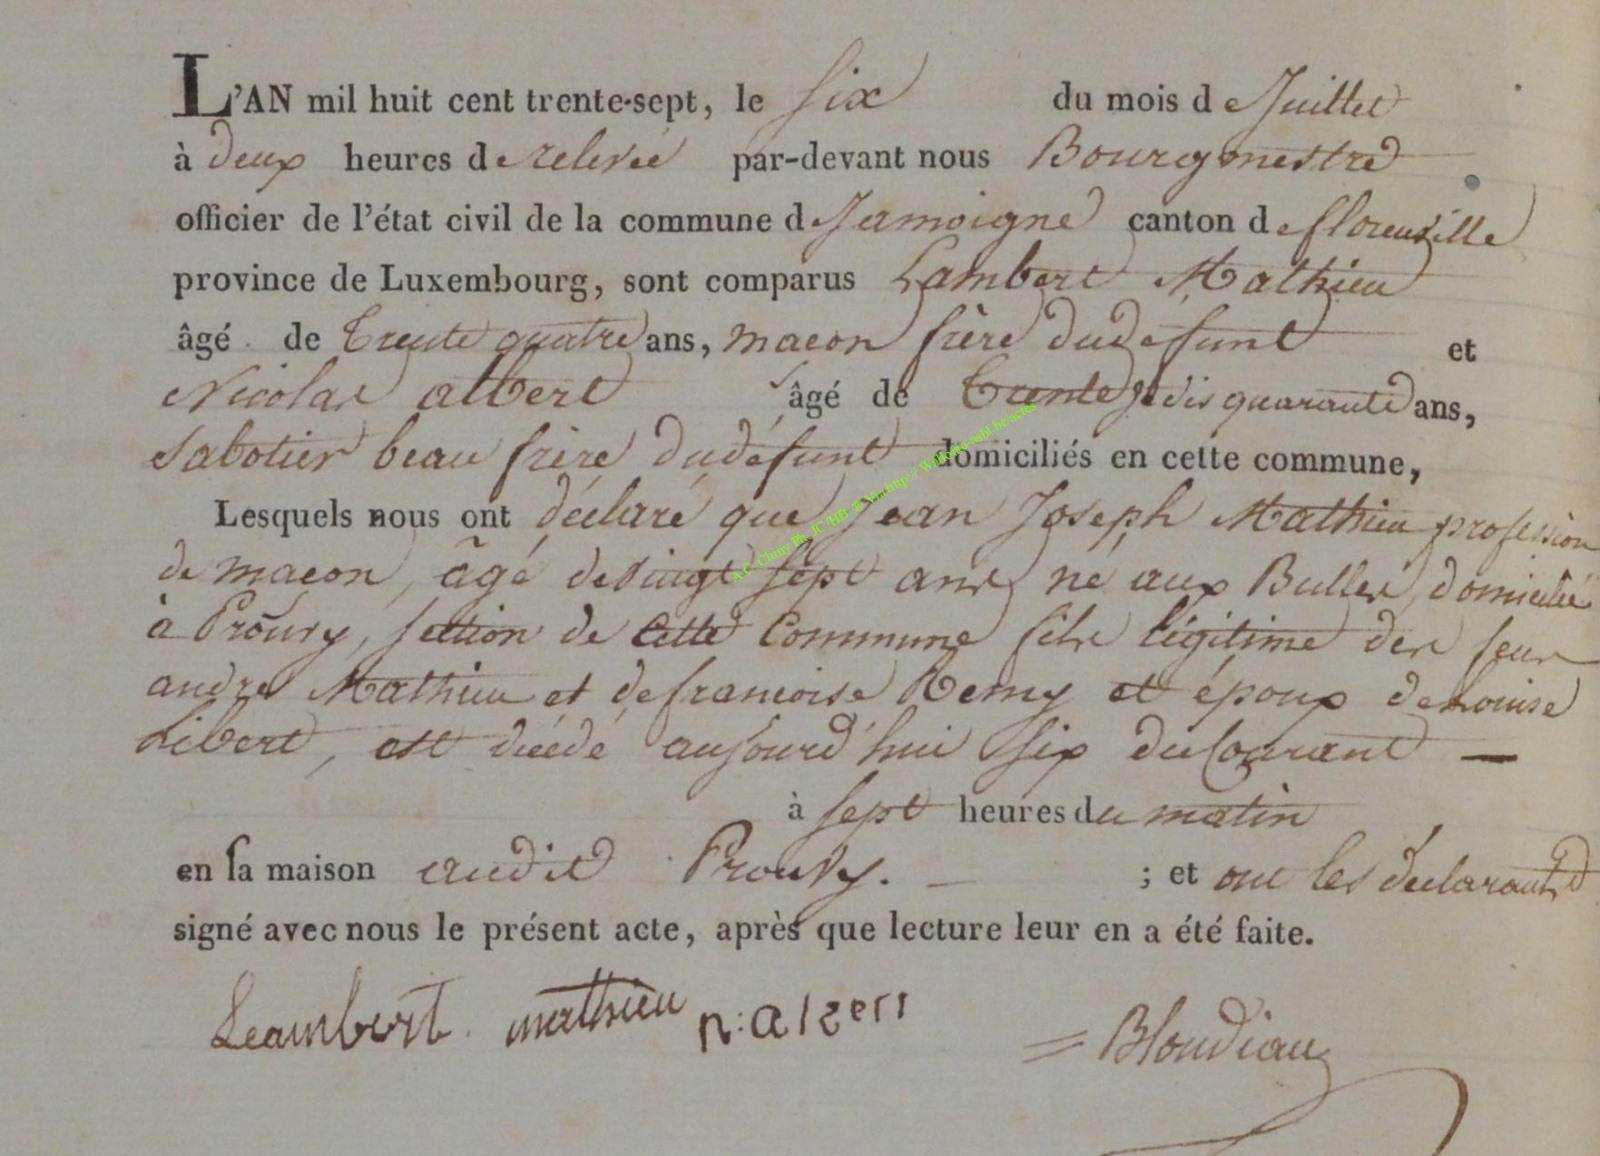 L'AN mil huit cent trente-sept, le Six du mois de Juillet
à deux heures de relevée par-devant nous Bourgmestre
officier de l'état civil de la commune d Jamoigne canton de florenville
province de Luxembourg, sont comparus Lambert Mathieu
âgé de trente quatre ans, macon frère du défunt et
Nicolas albert âgé de trente je dis quarante ans,
Sabotier beau frère du défunt domiciliés en cette commune,
Lesquels nous ont déclaré que Jean Joseph Mathieu profession
de maçon, âgé de vingt sept ans né aux Bulles, domicilié
à Prouvy, section de cette Commune fils légitime des feus
andré Mathieu et de francoise Remy et époux de Louise
Libert, est décédé aujourd'hui six du Courant —
à sept heures du matin
en sa maison audit Prouvy. — ; et ont les déclarants
signé avec nous le présent acte, après que lecture leur en a été faite.
Leambert mathieu n: alberr
= Blondiau